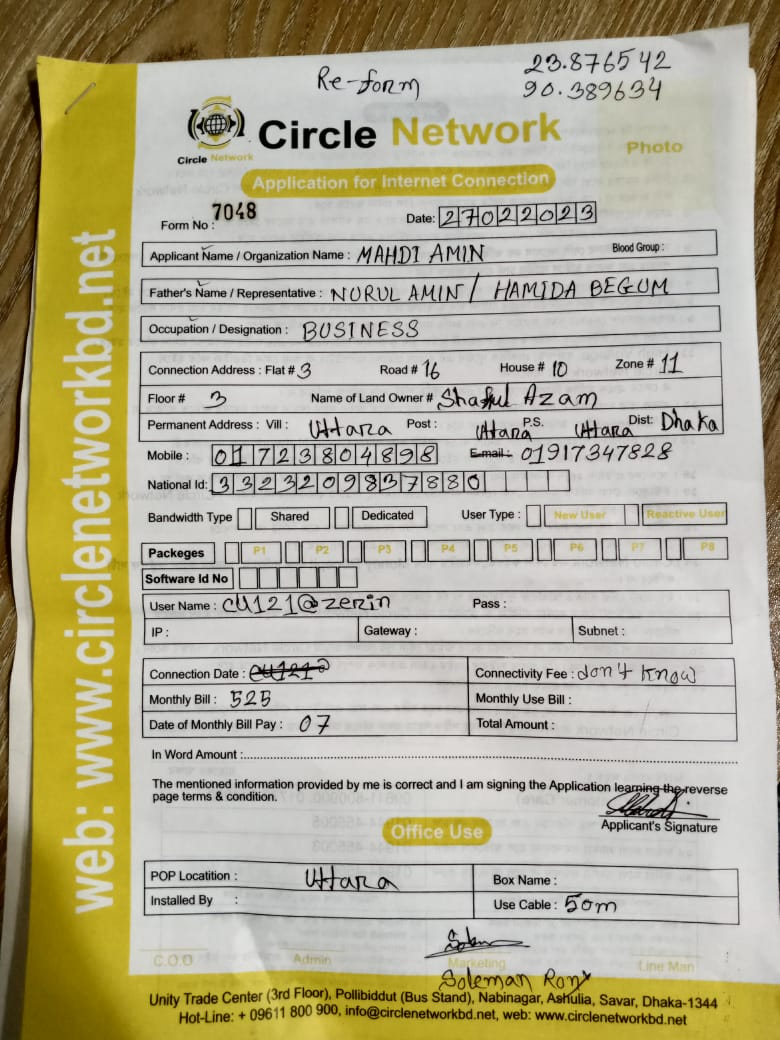 Re-form
23.876542
90.389634
Circle Network
Circle Network
Photo
Application for Internet Connection
Form No : 7048
Date: 27022023
Applicant Name / Organization Name : MAHDI AMIN Blood Group :
Father's Name / Representative : NURUL AMIN / HAMIDA BEGUM
Occupation / Designation : BUSINESS
Connection Address : Flat # 3 Road # 16 House # 10 Zone # 11
Floor # 3 Name of Land Owner # Azam
Permanent Address : Vill : Uttara Post : Uttara P.S. Uttara Dist: Dhaka
Mobile : 01723804898 E-mail : 01917347828
National Id: 3323209837880
Bandwidth Type Shared Dedicated User Type : New User Reactive User
Packeges P1 P2 P3 P4 P5 P6 P7 P8
Software Id No
User Name : cu121@zerin Pass :
IP : Gateway : Subnet :
Connection Date : Connectivity Fee : don't know
Monthly Bill : 525 Monthly Use Bill :
Date of Monthly Bill Pay : 07 Total Amount :
In Word Amount :
The mentioned information provided by me is correct and I am signing the Application learning the reverse
page terms & condition.
Applicant's Signature
Office Use
POP Locatition : Uttara Box Name :
Installed By : Use Cable : 50m
C.O.O Admin Marketing Line Man
Soleman Rony
Unity Trade Center (3rd Floor), Pollibiddut (Bus Stand), Nabinagar, Ashulia, Savar, Dhaka-1344
Hot-Line: + 09611 800 900, info@circlenetworkbd.net, web: www.circlenetworkbd.net
web: www.circlenetworkbd.net